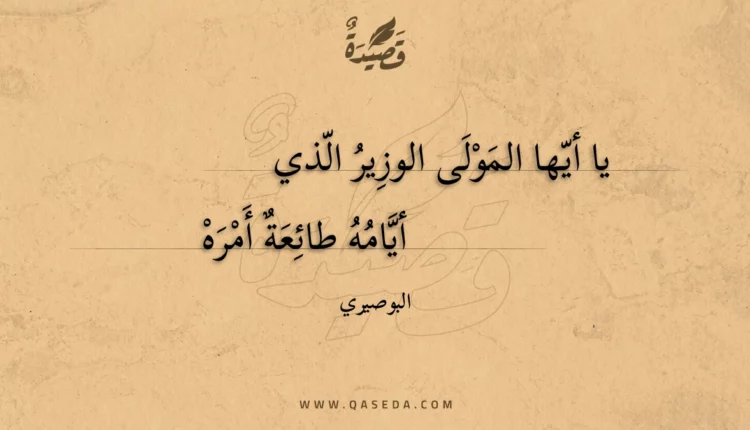 قَصِيدَةٌ
يا أيّها المَوْلَى الوزِيرُ الّذي
أيَّامُهُ طائِعَةٌ أَمْرَهْ
البوصيري
WWW.QASEDA.COM